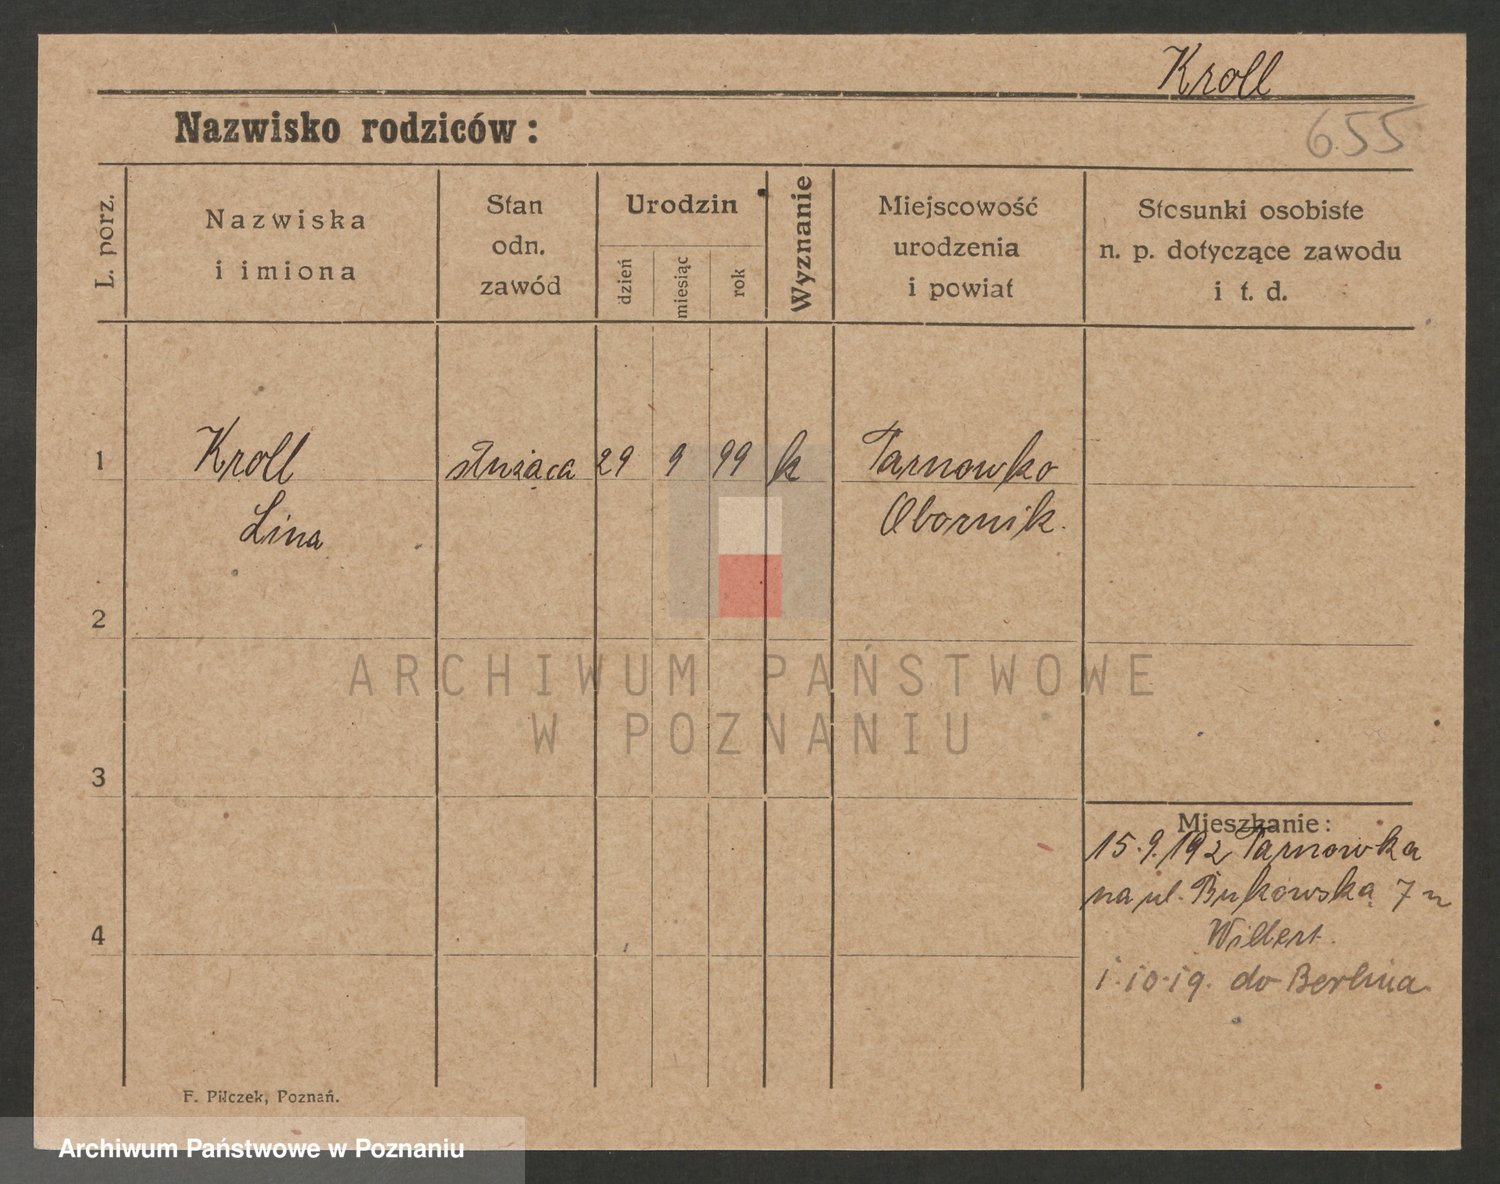 Kroll
655
Nazwisko rodziców:
L. porz.
Nazwiska
i imiona
Stan
odn.
zawód
Urodzin
dzień
miesiąc
rok
Wyznanie
Miejscowość
urodzenia
i powiat
Stosunki osobiste
n. p. dotyczące zawodu
i t. d.
1
Kroll
służąca
29 9 99
k
Tarnowko
Lina
Obornik.
2
ARCHIWUM PAŃSTWOWE
W POZNANIU
3
Mieszkanie:
15.9.192 Tarnowka
na ul. Bukowska 7 u
4
Willert.
1.10.19. do Berlina.
F. Pilczek, Poznań.
Archiwum Państwowe w Poznaniu